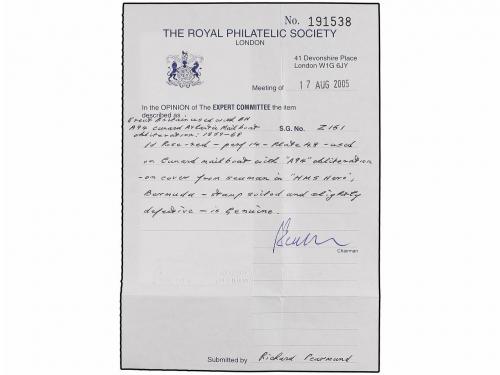 No. 191538
THE ROYAL PHILATELIC SOCIETY
LONDON
41 Devonshire Place
London W1G 6JY
Meeting of 17 AUG 2005
In the OPINION of The EXPERT COMMITTEE the item
described as : Great Britain used with BH
A94 Cunard Atlantic Mailboat
obliteration: 1859-68 S.G. No. Z151
1d Rose-red - perf 14 - Plate 48 - used
on Cunard mailboat with "A94" obliteration
- on cover from seaman in "HMS Hero",
Bermuda - stamp soiled and slightly
defective - is genuine.
Chairman
Submitted by Richard Pearmund